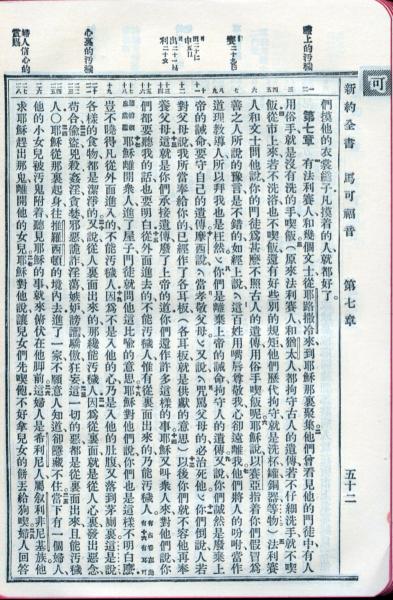 可
新約全書 馬可福音 第七章 五十二
體上的汚穢
心裏的汚穢
婦人信心的
們摸他的衣裳繸子凡摸着的人就都好了。
第七章 有法利賽人和幾個文士從耶路撒冷來到耶穌那裏聚集他們曾看見他的門徒中有人
用俗手就是沒有洗的手喫飯（原來法利賽人和猶太人都拘守古人的遺傳若不仔細洗手就不喫
飯從市上來若不洗浴也不喫飯還有好些別的規矩他們歷代拘守就是洗杯罐銅器等物）法利賽
人和文士問他說你的門徒爲甚麼不照古人的遺傳用俗手喫飯呢耶穌說以賽亞指着你們假冒爲
善之人所說的豫言是不錯的如經上說『這百姓用嘴唇尊敬我心卻遠離我他們將人的吩咐當作
道理教導人所以拜我也是枉然』你們是離棄上帝的誡命拘守人的遺傳又說你們誠然是廢棄上
帝的誡命要守自己的遺傳摩西說『當孝敬父母』又說『咒罵父母的必治死他』你們倒說人若
對父母說我所當奉給你的已經作了各耳板（各耳板就是供獻的意思）以後你們就不容他再奉
養父母這就是你們承接遺傳廢了上帝的道你們還作許多這樣的事耶穌又叫衆人來對他們說你
們都要聽我的話也要明白從外面進去的不能汚穢人惟有從裏面出來的乃能汚穢人
耶穌離開衆人進了屋子門徒就問他這比喻的意思耶穌對他們說你們也是這樣不明白麼
豈不曉得凡從外面進入的不能汚穢人因爲不是入他的心乃是入他的肚腹又落到茅廁裏這是說
各樣的食物都是潔淨的又說從人裏面出來的那纔能汚穢人因爲從裏面就是從人心裏發出惡念
苟合偷盜兇殺姦淫貪婪邪惡詭詐淫蕩嫉妬謗讟驕傲狂妄這一切的惡都是從裏面出來且能汚穢
人〇耶穌從那裏起身往推羅西頓的境內去進了一家不願意人知道卻隱藏不住當下有一個婦人
他的小女兒被汚鬼附着聽見耶穌的事就來俯伏在他脚前這婦人是希利尼人屬叙利非尼基族他
求耶穌趕出那鬼離開他的女兒耶穌對他說讓兒女們先喫飽不好拿兒女的餅丟給狗喫婦人回答